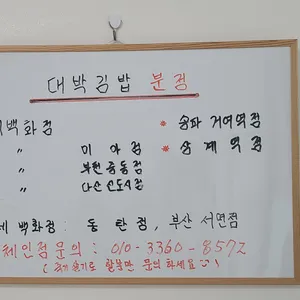 대박김밥 분점
백화점 * 송파 거여역점
〃 미아점 * 상계역점
〃 부천중동점
〃 다산신도시점
백화점 : 동탄점, 부산 서면점
체인점문의 : 010-3360-8572
문의 하세요